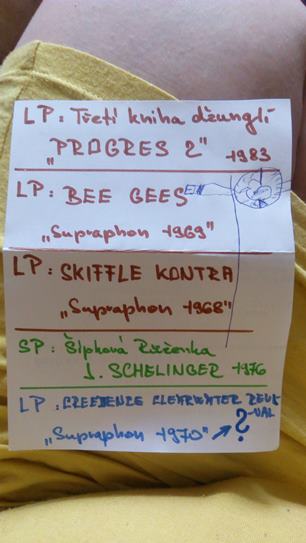 LP: Třetí kniha džunglí
„PROGRES 2" 1983
LP: BEE GEES
„Supraphon 1969"
LP: SKIFFLE KONTRA
„Supraphon 1968"
SP: Šípková Růženka
J. SCHELINGER 1976
LP: CREEDENCE CLEARWATER REVI
-VAL
„Supraphon 1970" → ?